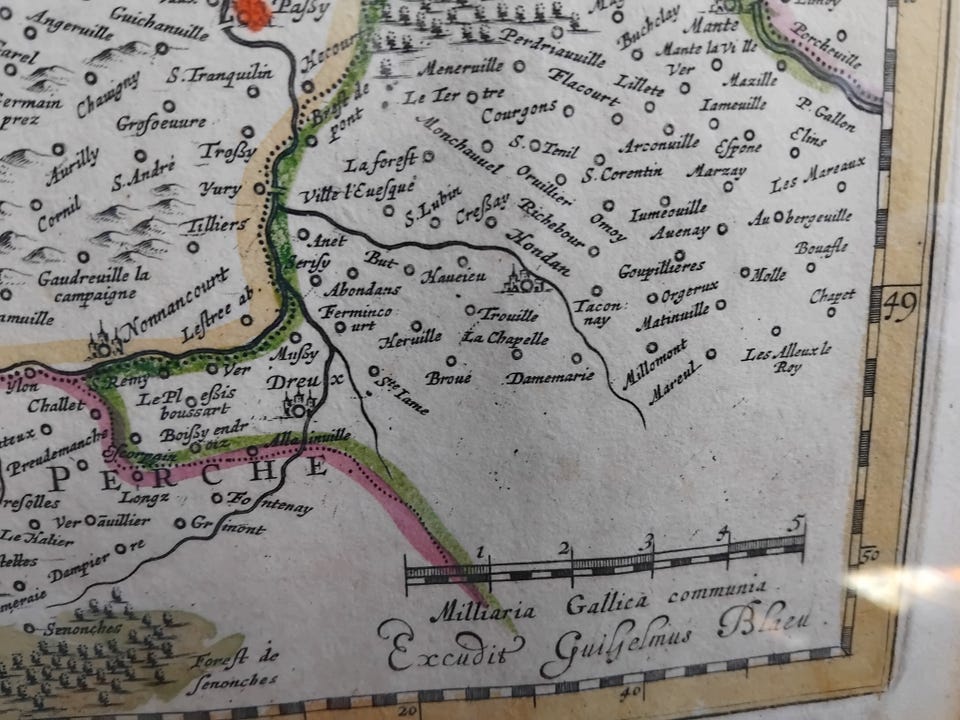 Paſsy
Angeruille
Guichanuille
Chauigny
S. Tranquilin
Groſoeuure
Troſsy
Aurilly
S. André
Yury
Cornil
Tilliers
Gaudreuille la
campaigne
Nonnancourt
Leſtree ab.
Perdriauuille
Buchelay
Mante
Mante la Ville
Porcheuille
Meneruille
Flacourt
Lillete
Ver
Mazille
Le Ter tre
Courgons
Iameuille
P. Gallon
pont
Monchauuel
S. Tenil
Arconuille
Eſpone
Elins
La foreſt
Oruillier
S. Corentin
Marzay
Les Mareaux
Ville l'Eueſque
S. Lubin
Creſsay
Richebour
Omoy
Iumeouille
Auenay
Au bergeuille
Anet
Seriſy
But
Haueieu
Hondan
Goupillieres
Molle
Bouafle
Chapet
Abondans
Ferminco
urt
Trouille
Tacon
nay
Orgerux
Matinuille
Heruille
La Chapelle
Muſsy
Broué
Damemarie
Millomont
Mareul
Les Alleux le
Roy
S. Remy
Ver
Dreux
Ste Iame
Challet
Le Pl eſsis
bouſsart
Boiſsy endr
oiz
Allainuille
Preudemanche
Eſcorpain
PERCHE
Longz
Fontenay
Ver auillier
Grinont
Le Hatier
Dampier re
Senonches
Foreſt de
ſenonches
1 2 3 4 5
Milliaria Gallica communia
Excudit Guiljelmus Blaeu
49
50
20
40